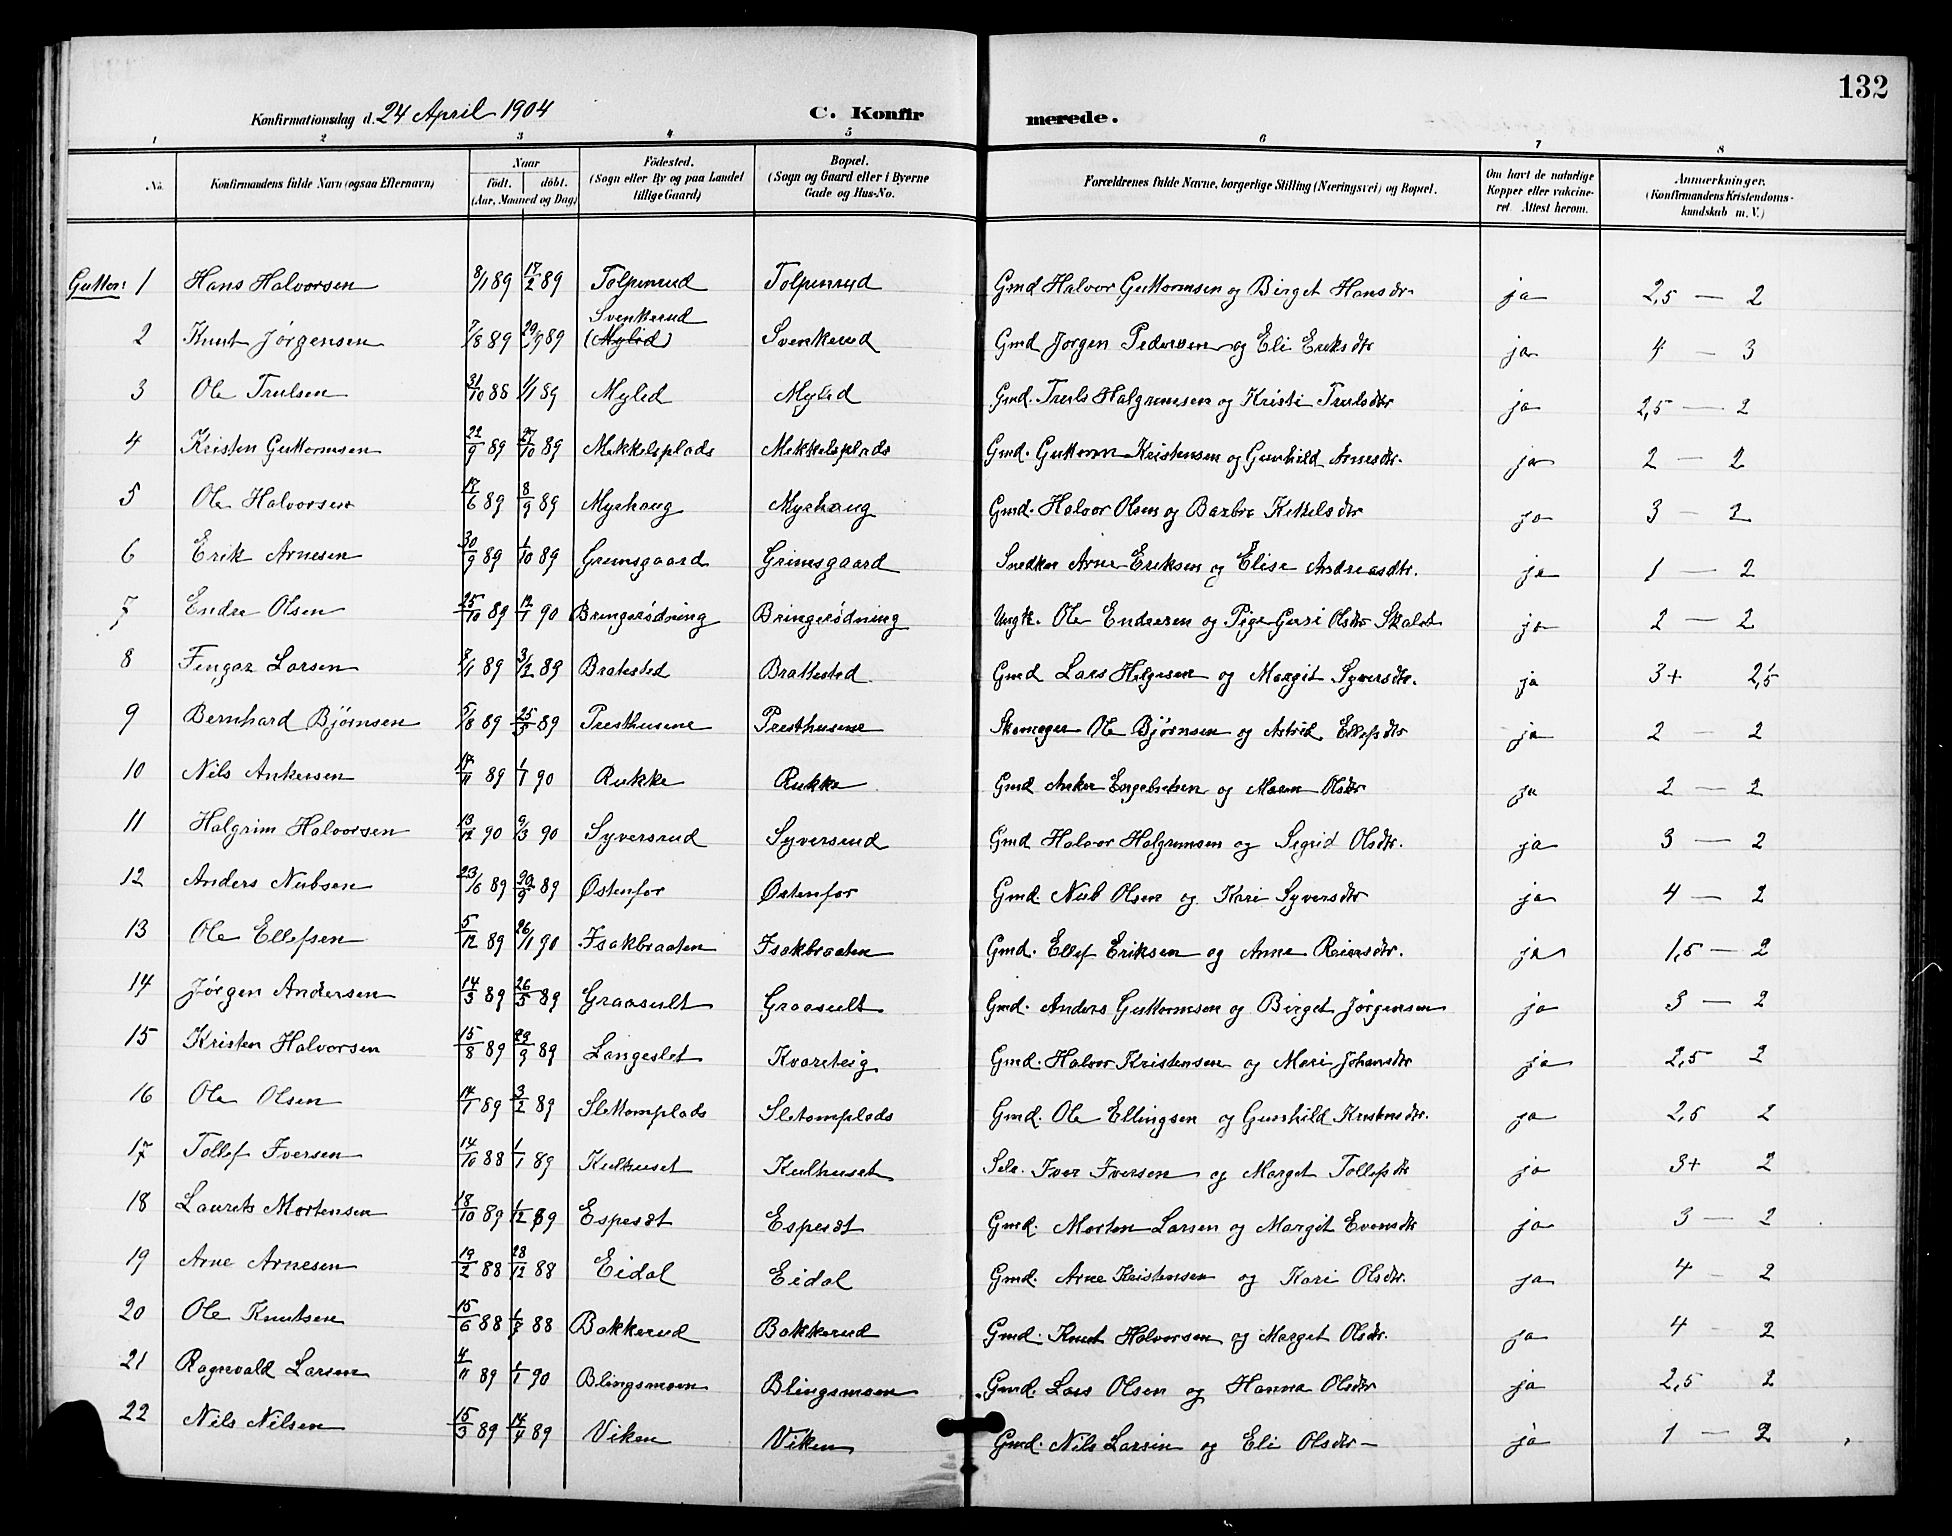 132
Konfirmationsdag d. 24 April 1904 C. Konfirmerede.
1 2 3 4 5 6 7 8
No. Konfirmandens fulde Navn (ogsaa Efternavn) Naar födt. döbt. (Aar, Maaned og Dag) Födested. (Sogn eller By og paa Landet tillige Gaard) Bopæl. (Sogn og Gaard eller i Byerne Gade og Hus-No. Forældrenes fulde Navne, borgerlige Stilling (Næringsvei) og Bopæl. Om havt de naturlige Kopper eller vakcineret. Attest herom. Anmærkninger. (Konfirmandens Kristendomskundskab m. V.)
Gutter: 1 Hans Halvorsen 8/1 89 17/2 89 Tolpinrud Tolpinrud Gmd Halvor Guttormsen og Birget Hansdtr ja 2,5 — 2
2 Knut Jørgensen 7/8 89 29/9 89 Svenkerud (Mylid) Svenkerud Gmd Jørgen Pedersen og Eli Eriksdtr ja 4 — 3
3 Ole Trulsen 31/10 88 1/1 89 Mylid Mylid Gmd. Truls Halgrimsen og Kristi Trulsdtr ja 2,5 — 2
4 Kristen Guttormsen 22/9 89 27/10 89 Mekkelsplads Mekkelsplads Gmd. Guttorm Kristensen og Gunhild Arnesdtr. ja 2 — 2
5 Ole Halvorsen 17/6 89 8/9 89 Myrhaug Myrhaug Gmd. Halvor Olsen og Barbro Kittelsdtr ja 3 — 2
6 Erik Arnesen 30/9 89 1/10 89 Grimsgaard Grimsgaard Snedker Arne Eriksen og Elise Andreasdtr. ja 1 — 2
7 Endre Olsen 25/10 89 12/1 90 Bringerødning Bringerødning Ungk. Ole Endresen og Pige Guri Olsdtr Skalet ja 2 — 2
8 Fingar Larsen 89 3/12 89 Bratested Brattested Gmd Lars Helgesen og Margit Syversdtr. ja 3+ 2,5
9 Bernhard Bjørnsen 5/8 89 89 Presthusene Presthusene Skomager Ole Bjørnsen og Astrid Ellefsdtr ja 2 — 2
10 Nils Ankersen 17/11 89 1/1 90 Rukke Rukke Gmd Anker Engebretsen og Maren Olsdtr ja 2 — 2
11 Halgrim Halvorsen 13/12 90 9/3 90 Syversrud Syversrud Gmd Halvor Halgrimsen og Sigrid Olsdtr. ja 3 — 2
12 Anders Nubsen 23/6 89 89 Østenfor Østenfor Gmd. Nub Olsen og Kari Syversdtr ja 4 — 2
13 Ole Ellefsen 5/12 89 26/1 90 Isakbraaten Isakbraaten Gmd. Ellef Eriksen og Anne Reiersdtr. ja 1,5 — 2
14 Jørgen Andersen 14/3 89 26/5 89 Graasult Graasult Gmd. Anders Guttormsen og Birget Jørgensen ja 3 — 2
15 Kristen Halvorsen 15/8 89 29/9 89 Langeslet Kvarteig Gmd. Halvor Kristensen og Mari Johansdtr ja 2,5 2
16 Ole Olsen 14/1 89 3/2 89 Slettomplads Sletomplads Gmd. Ole Ellingsen og Gunhild Kristensdtr. ja 2,5 2
17 Tollef Iversen 14/10 88 1/1 89 Kulhuset Kulhuset Selv. Iver Iversen og Marget Tollefsdtr ja 3+ 2
18 Laurets Mortensen 18/10 89 1/12 89 Espesæt Espesæt Gmd. Morten Larsen og Margit Evensdtr ja 3 — 2
19 Arne Arnesen 19/2 88 28/12 88 Eidal Eidal Gmd. Arne Kristensen og Kari Olsdtr. ja 4 — 2
20 Ole Knutsen 15/6 88 88 Bakkerud Bakkerud Gmd. Knut Halvorsen og Marget Olsdtr. ja 4 — 2
21 Ragnvald Larsen 4/11 89 1/1 90 Blingsmoen Blingsmoen Gmd. Lars Olsen og Hanna Olsdtr ja 2,5 2
22 Nils Nilsen 15/3 89 14/4 89 Viken Viken Gmd. Nils Larsin og Eli Olsdtr — ja 1 — 2